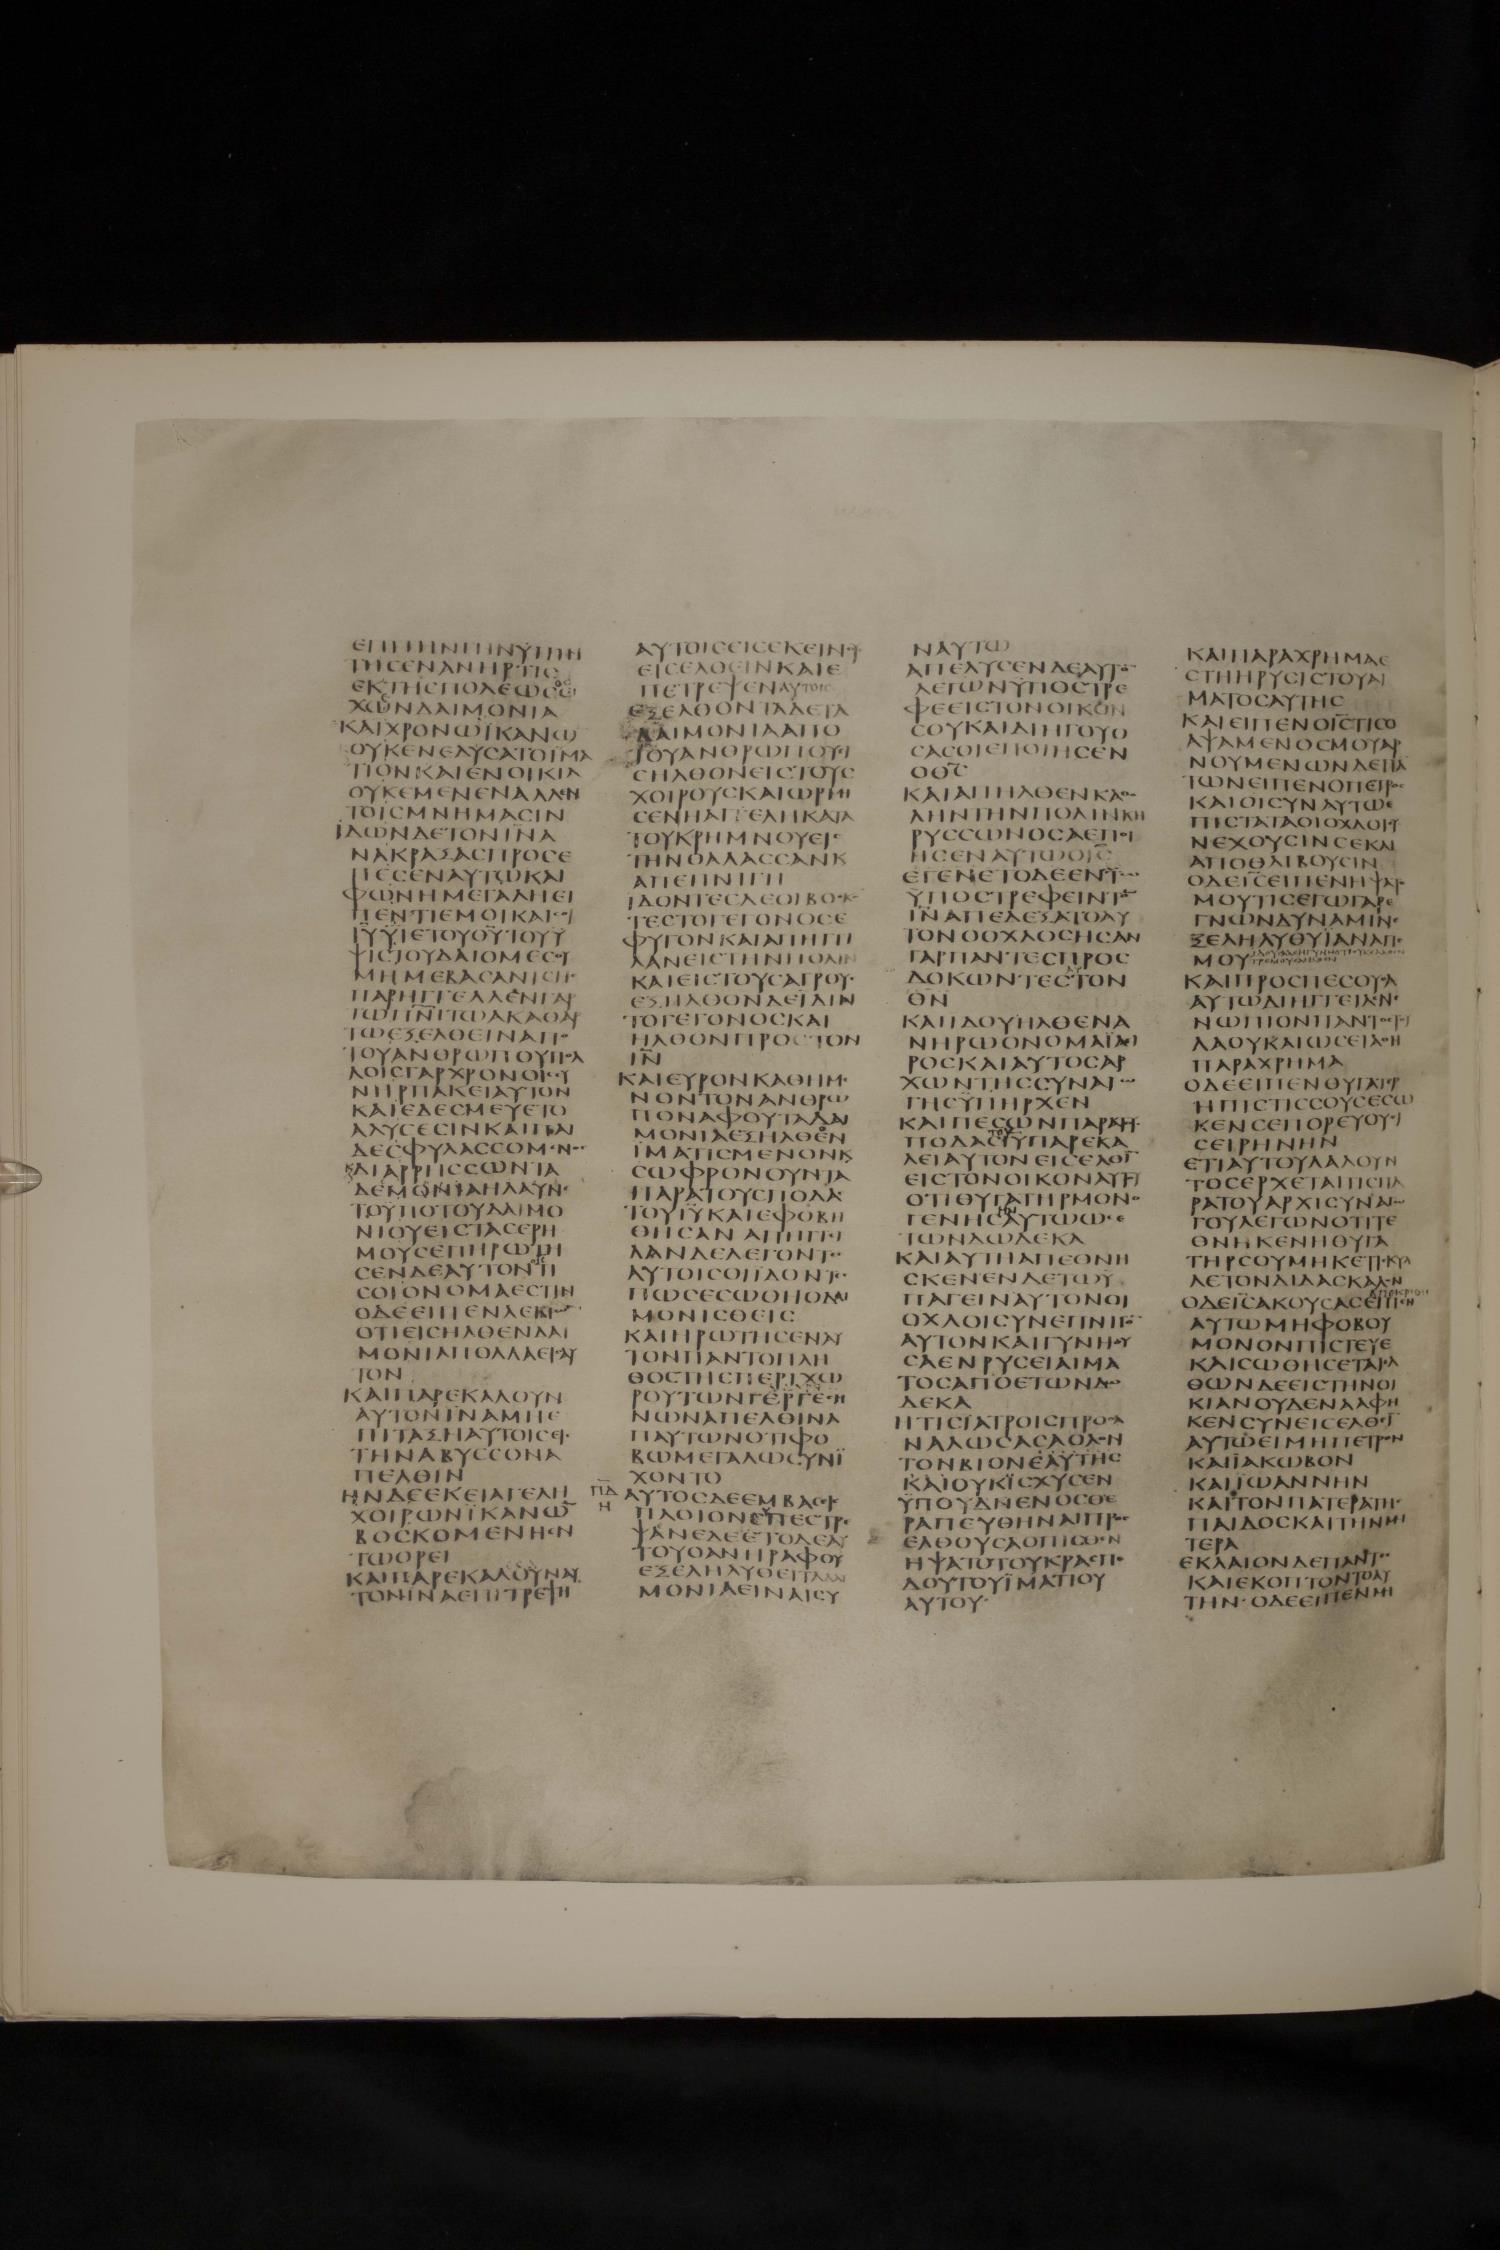 ΕΠΙΤΗΝΓΗΝΫΠΗΝ
ΤΗϹΕΝΑΝΗΡΤΙϹ
ΕΚΤΗϹΠΟΛΕΩϹΟϹΕΙ
ΧΩΝΔΑΙΜΟΝΙΑ
ΚΑΙΧΡΟΝΩΪΚΑΝΩ
ΟΥΚΕΝΕΔΥϹΑΤΟΪΜΑ
ΤΙΟΝΚΑΙΕΝΟΙΚΙΑ
ΟΥΚΕΜΕΝΕΝΑΛΛΕΝ
ΤΟΙϹΜΝΗΜΑϹΙΝ
ΪΔΩΝΔΕΤΟΝΙ̅Ν̅Α
ΝΑΚΡΑΞΑϹΠΡΟϹΕ
ΠΕϹΕΝΑΥΤΩΚΑΙ
ΦΩΝΗΜΕΓΑΛΗΕΙ
ΠΕΝΤΙΕΜΟΙΚΑΙϹΟΙ
Ι̅Υ̅Ϋ̈ΙΕΤΟΥΘ̅Υ̅ΤΟΥΫ
ΨΙϹΤΟΥΔΑΙΟΜΕϹΟΥ
ΜΗΜΕΒΑϹΑΝΙϹΗϹ
ΠΑΡΗΓΓΕΛΛΕΝΓΑΡ
ΤΩΠ̅Ν̅Ι̅ΤΩΑΚΑΘΑΡ
ΤΩΕΞΕΛΘΕΙΝΑΠΟ
ΤΟΥΑΝΘΡΩΠΟΥΠΟΛ
ΛΟΙϹΓΑΡΧΡΟΝΟΙϹϹΥ
ΝΗΡΠΑΚΕΙΑΥΤΟΝ
ΚΑΙΕΔΕϹΜΕΥΕΤΟ
ΑΛΥϹΕϹΙΝΚΑΙΠΕΔΑΙ
ΔΕϹΦΥΛΑϹϹΟΜΕΝΟϹ
ΚΑΙΔΙΑΡΡΗϹϹΩΝΤΑ
ΔΕϹΜΑΗΛΑΥΝΕΤΟ
ΫΠΟΤΟΥΔΑΙΜΟ
ΝΙΟΥΕΙϹΤΑϹΕΡΗ
ΜΟΥϹΕΠΗΡΩΤΗ
ϹΕΝΔΕΑΥΤΟΝΟΙ̅Ϲ̅ΤΙ
ϹΟΙΟΝΟΜΑΕϹΤΙΝ
ΟΔΕΕΙΠΕΝΛΕΓΙΩΝ
ΟΤΙΕΙϹΗΛΘΕΝΔΑΙ
ΜΟΝΙΑΠΟΛΛΑΕΙϹΑΥ
ΤΟΝ
ΚΑΙΠΑΡΕΚΑΛΟΥΝ
ΑΥΤΟΝΪΝΑΜΗΕ
ΠΙΤΑΞΗΑΥΤΟΙϹΕΙϹ
ΤΗΝΑΒΥϹϹΟΝΑ
ΠΕΛΘΙΝ
ΗΝΔΕΕΚΕΙΑΓΕΛΗ
ΧΟΙΡΩΝΪΚΑΝΩ̅
ΒΟϹΚΟΜΕΝΗΕΝ
ΤΩΟΡΕΙ
ΚΑΙΠΑΡΕΚΑΛΟΥΝΑΥ
ΤΟΝΪΝΑΕΠΙΤΡΕΨΗ
ΑΥΤΟΙϹΕΙϹΕΚΕΙΝΟΥϹ
ΕΙϹΕΛΘΕΙΝΚΑΙΕ
ΠΕΤΡΕΨΕΝΑΥΤΟΙϹ
ΕΞΕΛΘΟΝΤΑΔΕΤΑ
ΔΑΙΜΟΝΙΑΑΠΟ
ΤΟΥΑΝΘΡΩΠΟΥΕΙ
ϹΗΛΘΟΝΕΙϹΤΟΥϹ
ΧΟΙΡΟΥϹΚΑΙΩΡΜΗ
ϹΕΝΗΑΓΕΛΗΚΑΤΑ
ΤΟΥΚΡΗΜΝΟΥΕΙϹ
ΤΗΝΘΑΛΑϹϹΑΝΚ
ΑΠΕΠΝΙΓΗ
ΪΔΟΝΤΕϹΔΕΟΙΒΟϹΚ
ΤΕϹΤΟΓΕΓΟΝΟϹΕ
ΦΥΓΟΝΚΑΙΑΠΗΓΓΙ
ΛΑΝΕΙϹΤΗΝΠΟΛΙΝ
ΚΑΙΕΙϹΤΟΥϹΑΓΡΟΥϹ
ΕΞΗΛΘΟΝΔΕΪΔΙΝ
ΤΟΓΕΓΟΝΟϹΚΑΙ
ΗΛΘΟΝΠΡΟϹΤΟΝ
Ι̅Ν̅
ΚΑΙΕΥΡΟΝΚΑΘΗΜΕ
ΝΟΝΤΟΝΑΝΘΡΩ
ΠΟΝΑΦΟΥΤΑΔΑΙ
ΜΟΝΙΑΕΞΗΛΘΕΝ
ΪΜΑΤΙϹΜΕΝΟΝΚ
ϹΩΦΡΟΝΟΥΝΤΑ
ΠΑΡΑΤΟΥϹΠΟΔΑϹ
ΤΟΥΙ̅Υ̅ΚΑΙΕΦΟΒΗ
ΘΗϹΑΝΑΠΗΓΓΙ
ΛΑΝΔΕΛΕΓΟΝΤΕϹ
ΑΥΤΟΙϹΟΙΪΔΟΝΤΕϹ
ΠΩϹΕϹΩΘΗΟΔΑΙ
ΜΟΝΙϹΘΕΙϹ
ΚΑΙΗΡΩΤΗϹΕΝΑΥ
ΤΟΝΠΑΝΤΟΠΛΗ
ΘΟϹΤΗϹΠΕΡΙΧΩ
ΡΟΥΤΩΝΓΕΡΓΕϹΗ
ΝΩΝΑΠΕΛΘΙΝΑ
ΠΑΥΤΩΝΟΤΙΦΟ
ΒΩΜΕΓΑΛΩϹΥΝΪ
ΧΟΝΤΟ
Π̅Δ̅
Η
ΑΥΤΟϹΔΕΕΜΒΑϹΕΙϹ
ΠΛΟΙΟΝΫΠΕϹΤΡΕ
ΨΕΝΕΔΕΕΤΟΔΕΑΥ
ΤΟΥΟΑΝΗΡΑΦΟΥ
ΕΞΕΛΗΛΥΘΕΙΤΑΔΑΙ
ΜΟΝΙΑΕΙΝΑΙϹΥ
ΝΑΥΤΩ
ΑΠΕΛΥϹΕΝΔΕΑΥΤΟ̅
ΛΕΓΩΝΫΠΟϹΤΡΕ
ΦΕΕΙϹΤΟΝΟΙΚΟΝ
ϹΟΥΚΑΙΔΙΗΓΟΥΟ
ϹΑϹΟΙΕΠΟΙΗϹΕΝ
ΟΘ̅Ϲ̅
ΚΑΙΑΠΗΛΘΕΝΚΑΘΟ
ΛΗΝΤΗΝΠΟΛΙΝΚΗ
ΡΥϹϹΩΝΟϹΑΕΠΟΙ
ΗϹΕΝΑΥΤΩΟΙ̅Ϲ̅
ΕΓΕΝΕΤΟΔΕΕΝΤΩ
ΫΠΟϹΤΡΕΦΕΙΝΤΟ̅
Ι̅Ν̅ΑΠΕΔΕΞΑΤΟΑΥ
ΤΟΝΟΟΧΛΟϹΗϹΑΝ
ΓΑΡΠΑΝΤΕϹΠΡΟϹ
ΔΟΚΩΝΤΕϹΤΟΝ
Θ̅Ν̅
ΚΑΙΪΔΟΥΗΛΘΕΝΑ
ΝΗΡΩΟΝΟΜΑΪΑΕΙ
ΡΟϹΚΑΙΑΥΤΟϹΑΡ
ΧΩΝΤΗϹϹΥΝΑΓΩ
ΓΗϹΫΠΗΡΧΕΝ
ΚΑΙΠΕϹΩΝΠΑΡΑΤΟΥϹ
ΠΟΔΑϹΤΟΥΙ̅Υ̅ΠΑΡΕΚΑ
ΛΕΙΑΥΤΟΝΕΙϹΕΛΘΙ̅
ΕΙϹΤΟΝΟΙΚΟΝΑΥΤΟΥ
ΟΤΙΘΥΓΑΤΗΡΜΟΝΟ
ΓΕΝΗϹΗΝΑΥΤΩΩϹΕ
ΤΩΝΔΩΔΕΚΑ
ΚΑΙΑΥΤΗΑΠΕΘΝΗ
ϹΚΕΝΕΝΔΕΤΩΫ
ΠΑΓΕΙΝΑΥΤΟΝΟΙ
ΟΧΛΟΙϹΥΝΕΠΝΙΓΟ̅
ΑΥΤΟΝΚΑΙΓΥΝΗΟΥ
ϹΑΕΝΡΥϹΕΙΑΙΜΑ
ΤΟϹΑΠΟΕΤΩΝΔΩ
ΔΕΚΑ
ΗΤΙϹΪΑΤΡΟΙϹΠΡΟϹΑ
ΝΑΛΩϹΑϹΑΟΛΟΝ
ΤΟΝΒΙΟΝΕΑΥΤΗϹ
ΚΑΙΟΥΚΪϹΧΥϹΕΝ
ΫΠΟΥΔΕΝΟϹΘΕ
ΡΑΠΕΥΘΗΝΑΙΠΡΟϹ
ΕΛΘΟΥϹΑΟΠΙϹΘΕΝ
ΗΨΑΤΟΤΟΥΚΡΑϹΠΕ
ΔΟΥΤΟΥΪΜΑΤΙΟΥ
ΑΥΤΟΥ
ΚΑΙΠΑΡΑΧΡΗΜΑΕ
ϹΤΗΗΡΥϹΙϹΤΟΥΑΙ
ΜΑΤΟϹΑΥΤΗϹ
ΚΑΙΕΙΠΕΝΟΙ̅Ϲ̅ΤΙϹΟ
ΑΨΑΜΕΝΟϹΜΟΥΑΡ
ΝΟΥΜΕΝΩΝΔΕΠΑ̅
ΤΩΝΕΙΠΕΝΟΠΕΤΡΟϹ
ΚΑΙΟΙϹΥΝΑΥΤΩΕ
ΠΙϹΤΑΤΑΟΙΟΧΛΟΙϹΥ
ΝΕΧΟΥϹΙΝϹΕΚΑΙ
ΑΠΟΘΛΙΒΟΥϹΙΝ
ΟΔΕΙ̅Ϲ̅ΕΙΠΕΝΗΨΑΤΟ
ΜΟΥΤΙϹΕΓΩΓΑΡΕ
ΓΝΩΝΔΥΝΑΜΙΝΕ
ΞΕΛΗΛΥΘΥΪΑΝΑΠΕ
ΜΟΥ
ΚΑΙΠΡΟϹΠΕϹΟΥϹΑ
ΑΥΤΩΔΙΗΓΓΕΙΛΕΝΕ
ΝΩΠΙΟΝΠΑΝΤΟϹΤΟΥ
ΛΑΟΥΚΑΙΩϹΕΙΑΘΗ
ΠΑΡΑΧΡΗΜΑ
ΟΔΕΕΙΠΕΝΘΥΓΑΤΗΡ
ΗΠΙϹΤΙϹϹΟΥϹΕϹΩ
ΚΕΝϹΕΠΟΡΕΥΟΥΕΙ
ϹΕΙΡΗΝΗΝ
ΕΤΙΑΥΤΟΥΛΑΛΟΥΝ
ΤΟϹΕΡΧΕΤΑΙΤΙϹΠΑ
ΡΑΤΟΥΑΡΧΙϹΥΝΑΓΩ
ΓΟΥΛΕΓΩΝΟΤΙΤΕ
ΘΝΗΚΕΝΗΘΥΓΑ
ΤΗΡϹΟΥΜΗΚΕΤΙϹΚΥΛ
ΛΕΤΟΝΔΙΔΑϹΚΑΛΟΝ
ΟΔΕΙ̅Ϲ̅ΑΚΟΥϹΑϹΕΙΠΕΝ
ΑΥΤΩΜΗΦΟΒΟΥ
ΜΟΝΟΝΠΙϹΤΕΥΕ
ΚΑΙϹΩΘΗϹΕΤΑΙΕΛ
ΘΩΝΔΕΕΙϹΤΗΝΟΙ
ΚΙΑΝΟΥΔΕΝΑΑΦΗ
ΚΕΝϹΥΝΕΙϹΕΛΘΕΙ̅
ΑΥΤΩΕΙΜΗΠΕΤΡΟΝ
ΚΑΙΪΑΚΩΒΟΝ
ΚΑΙΪΩΑΝΝΗΝ
ΚΑΙΤΟΝΠΑΤΕΡΑΤΗϹ
ΠΑΙΔΟϹΚΑΙΤΗΝΜΗ
ΤΕΡΑ
ΕΚΛΑΙΟΝΔΕΠΑΝΤΕϹ
ΚΑΙΕΚΟΠΤΟΝΤΟΑΥ
ΤΗΝ·ΟΔΕΕΙΠΕΝΜΗ